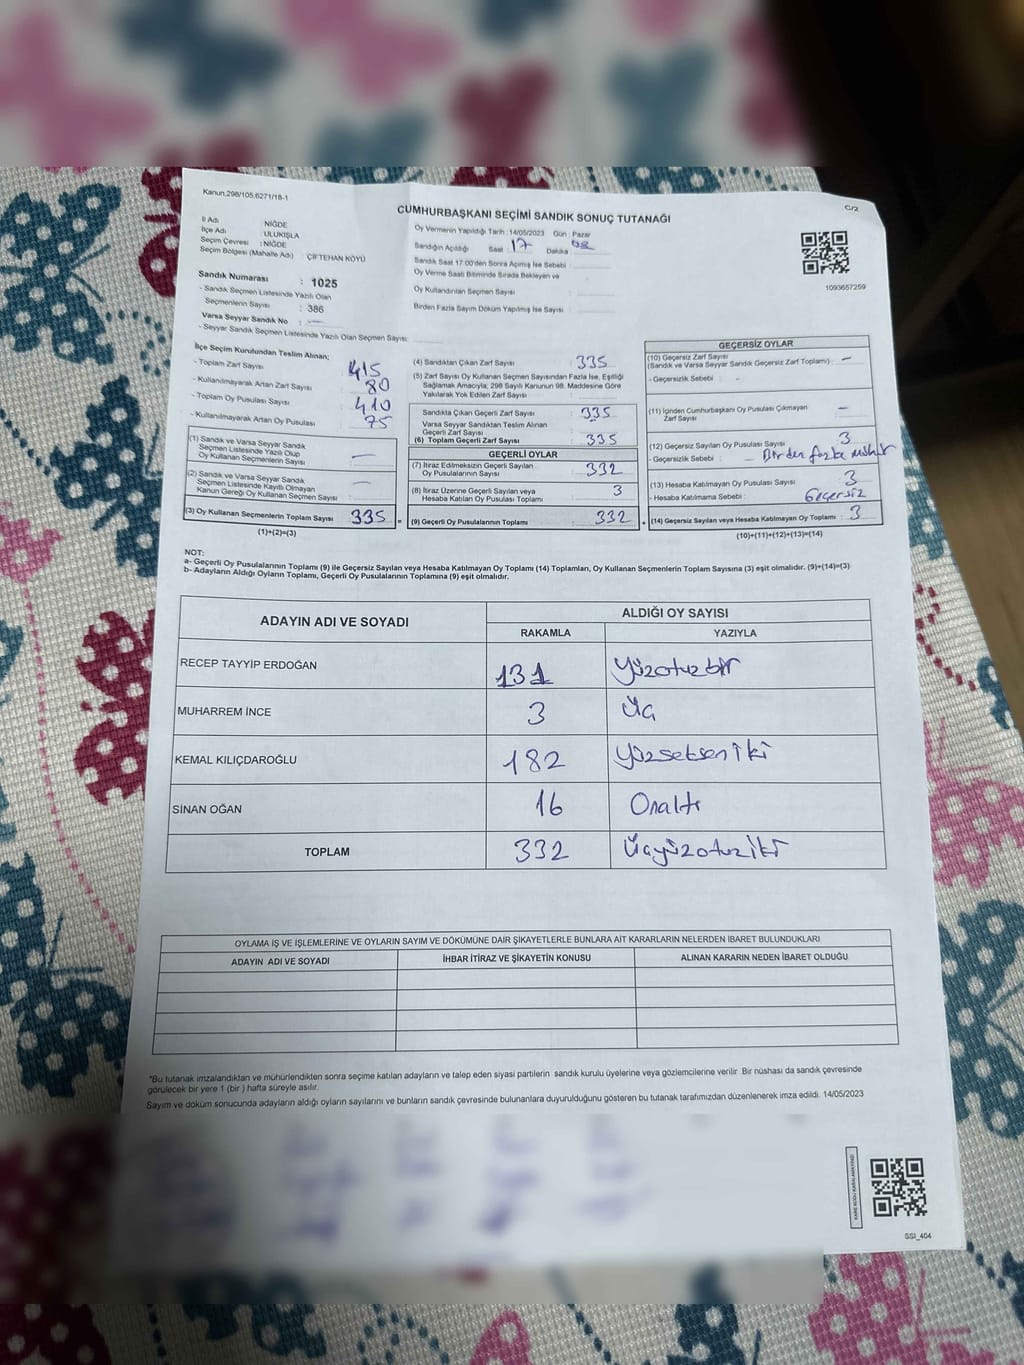 Kanun:298/105;6271/18-1
C/2
CUMHURBAŞKANI SEÇİMİ SANDIK SONUÇ TUTANAĞI
İl Adı : NİĞDE
İlçe Adı : ULUKIŞLA
Seçim Çevresi : NİĞDE
Seçim Bölgesi (Mahalle Adı) : ÇİFTEHAN KÖYÜ
Sandık Numarası : 1025
- Sandık Seçmen Listesinde Yazılı Olan
Seçmenlerin Sayısı : 386
Varsa Seyyar Sandık No : —
- Seyyar Sandık Seçmen Listesinde Yazılı Olan Seçmen Sayısı:
Oy Vermenin Yapıldığı Tarih : 14/05/2023 Gün : Pazar
Sandığın Açıldığı Saat : 17 Dakika :
Sandık Saat 17:00'den Sonra Açılmış İse Sebebi :
Oy Verme Saati Bitiminde Sırada Bekleyen ve
Oy Kullandırılan Seçmen Sayısı :
Birden Fazla Sayım Döküm Yapılmış İse Sayısı :
1093657259
İlçe Seçim Kurulundan Teslim Alınan;
- Toplam Zarf Sayısı : 415
- Kullanılmayarak Artan Zarf Sayısı : 80
- Toplam Oy Pusulası Sayısı : 410
- Kullanılmayarak Artan Oy Pusulası : 75
(1) Sandık ve Varsa Seyyar Sandık
Seçmen Listesinde Yazılı Olup
Oy Kullanan Seçmenlerin Sayısı : —
(2) Sandık ve Varsa Seyyar Sandık
Seçmen Listesinde Kayıtlı Olmayan
Kanun Gereği Oy Kullanan Seçmen Sayısı : —
(3) Oy Kullanan Seçmenlerin Toplam Sayısı : 335
(1)+(2)=(3)
(4) Sandıktan Çıkan Zarf Sayısı : 335
(5) Zarf Sayısı Oy Kullanan Seçmen Sayısından Fazla İse, Eşitliği
Sağlamak Amacıyla; 298 Sayılı Kanunun 98. Maddesine Göre
Yakılarak Yok Edilen Zarf Sayısı :
Sandıkta Çıkan Geçerli Zarf Sayısı : 335
Varsa Seyyar Sandıktan Teslim Alınan
Geçerli Zarf Sayısı :
(6) Toplam Geçerli Zarf Sayısı : 335
GEÇERLİ OYLAR
(7) İtiraz Edilmeksizin Geçerli Sayılan
Oy Pusulalarının Sayısı : 332
(8) İtiraz Üzerine Geçerli Sayılan veya
Hesaba Katılan Oy Pusulası Toplamı : 3
(9) Geçerli Oy Pusulalarının Toplamı : 332
GEÇERSİZ OYLAR
(10) Geçersiz Zarf Sayısı
(Sandık ve Varsa Seyyar Sandık Geçersiz Zarf Toplamı) : —
- Geçersizlik Sebebi : -
(11) İçinden Cumhurbaşkanı Oy Pusulası Çıkmayan
Zarf Sayısı : —
(12) Geçersiz Sayılan Oy Pusulası Sayısı : 3
- Geçersizlik Sebebi : Birden fazla mühür
(13) Hesaba Katılmayan Oy Pusulası Sayısı : 3
- Hesaba Katılmama Sebebi : Geçersiz
(14) Geçersiz Sayılan veya Hesaba Katılmayan Oy Toplamı : 3
(10)+(11)+(12)+(13)=(14)
NOT:
a- Geçerli Oy Pusulalarının Toplamı (9) ile Geçersiz Sayılan veya Hesaba Katılmayan Oy Toplamı (14) Toplamları, Oy Kullanan Seçmenlerin Toplam Sayısına (3) eşit olmalıdır. (9)+(14)=(3)
b- Adayların Aldığı Oyların Toplamı, Geçerli Oy Pusulalarının Toplamına (9) eşit olmalıdır.
ADAYIN ADI VE SOYADI ALDIĞI OY SAYISI
RAKAMLA YAZIYLA
RECEP TAYYİP ERDOĞAN 131 Yüzotuzbir
MUHARREM İNCE 3 Üç
KEMAL KILIÇDAROĞLU 182 Yüzsekseniki
SİNAN OĞAN 16 Onaltı
TOPLAM 332 Üçyüzotuziki
OYLAMA İŞ VE İŞLEMLERİNE VE OYLARIN SAYIM VE DÖKÜMÜNE DAİR ŞİKAYETLERLE BUNLARA AİT KARARLARIN NELERDEN İBARET BULUNDUKLARI
ADAYIN ADI VE SOYADI İHBAR İTİRAZ VE ŞİKAYETİN KONUSU ALINAN KARARIN NEDEN İBARET OLDUĞU
*Bu tutanak imzalandıktan ve mühürlendikten sonra seçime katılan adayların ve talep eden siyasi partilerin sandık kurulu üyelerine veya gözlemcilerine verilir. Bir nüshası da sandık çevresinde
görülecek bir yere 1 (bir ) hafta süreyle asılır.
Sayım ve döküm sonucunda adayların aldığı oyların sayılarını ve bunların sandık çevresinde bulunanlara duyurulduğunu gösteren bu tutanak tarafımızdan düzenlenerek imza edildi. 14/05/2023
SSI_404